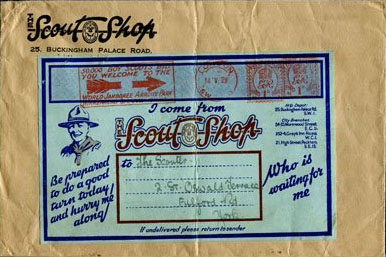 THE Scout Shop
25. BUCKINGHAM PALACE ROAD,
50,000 BOY SCOUTS BID
YOU WELCOME TO THE
WORLD JAMBOREE ARROWE PARK
LONDON
I come from
THE Scout Shop
Hd. Depot:
25, Buckingham Palace Rd.
S.W. 1.
City Branches:
E.C. 2.
W.C. 1.
S.E. 15.
Be prepared
to do a good
turn today
and hurry me
along!
to The Scouter
2 St. Oswald Terrace
Fulford Rd
York
Who is
waiting for
me
If undelivered please return to sender